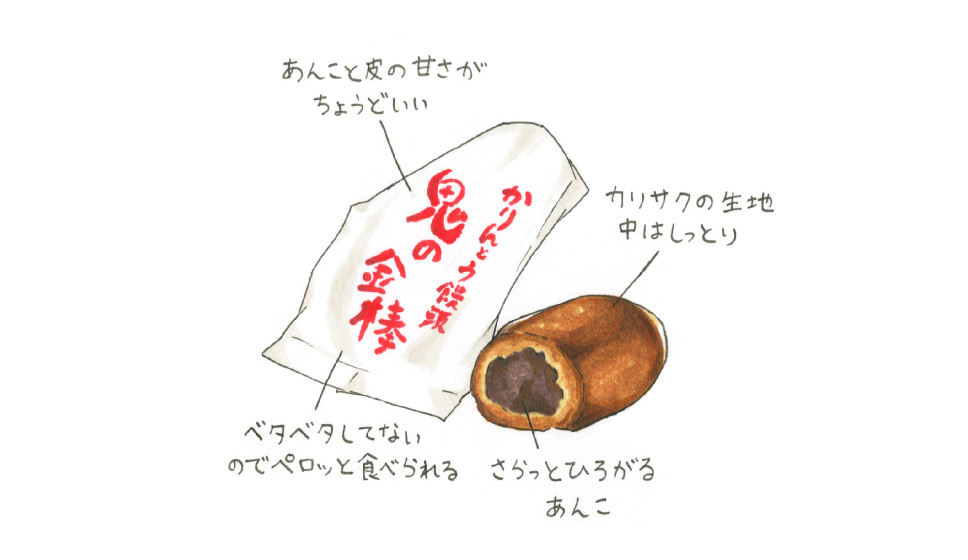 あんこと皮の甘さが
ちょうどいい
かりんとう饅頭
鬼の
金棒
カリサクの生地
中はしっとり
ベタベタしてない
のでペロッと食べられる
さらっとひろがる
あんこ